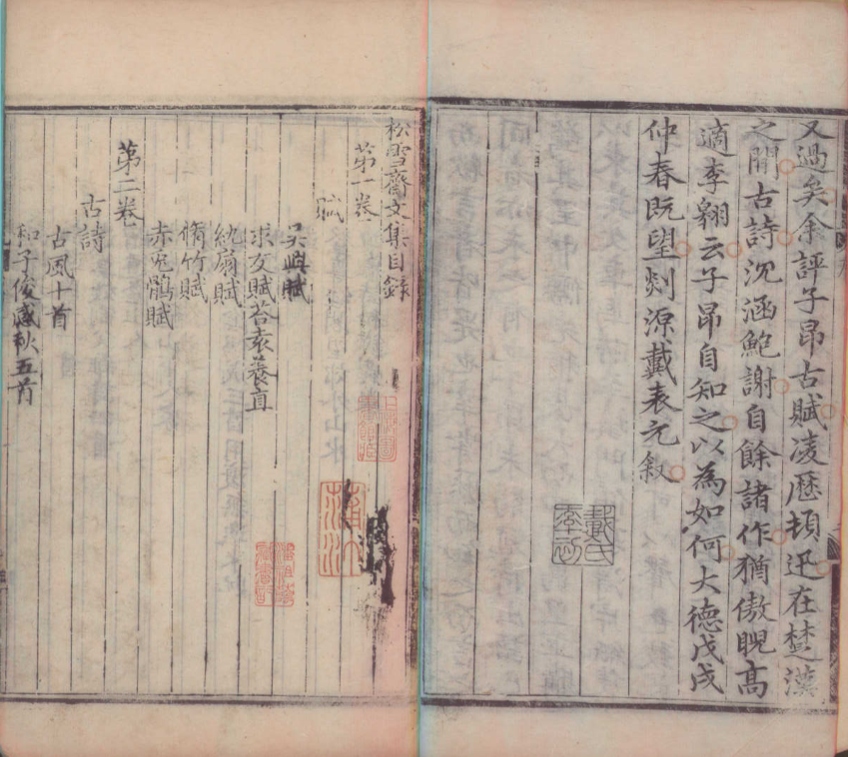 又過矣余評子昂古賦凌厯頓迅在楚漢
之間古詩沉涵鮑謝自餘諸作猶傲睨高
適李翱云子昂自知之以為如何大德戊戌
仲春既望剡源戴表元叙
戴氏
松雪齋文集目錄
第一卷
賦
吳興賦
求友賦荅袁養直
紈扇賦
脩竹賦
赤兎鶻賦
第二卷
古詩
古風十首
和子俊感秋五首